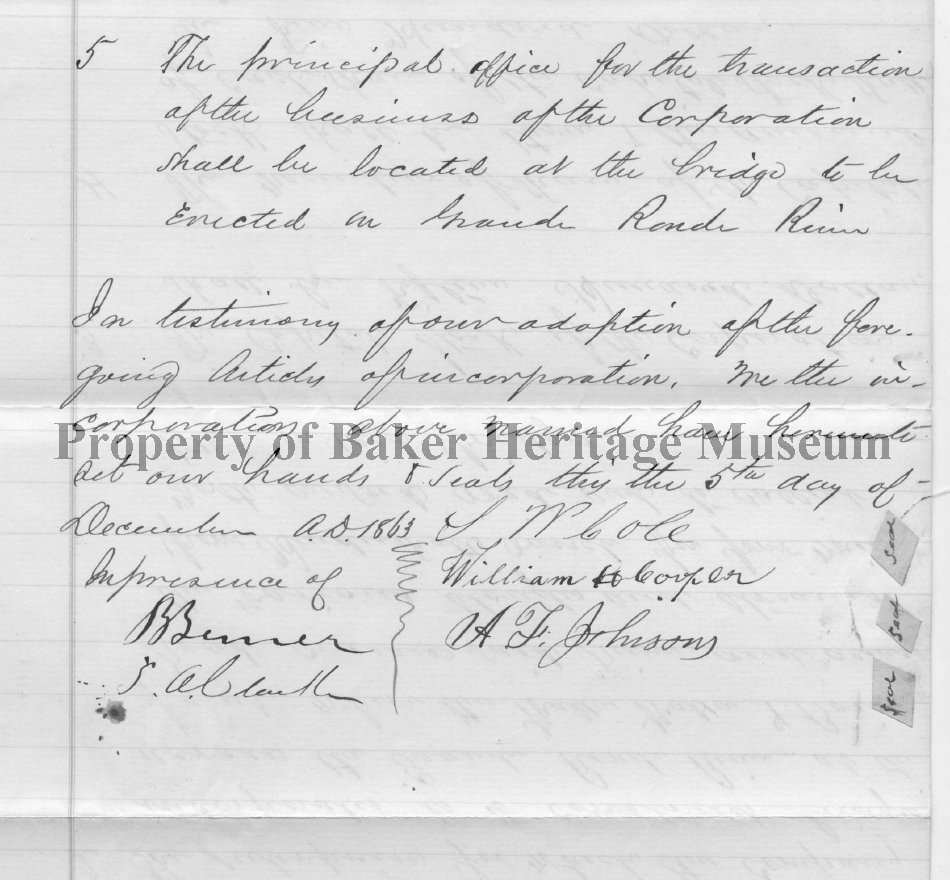 5 The principal office for the transaction
of the business of the Corporation
shall be located at the bridge to be
Erected on Grande Ronde River
In testimony of our adoption of the fore-
going Articles of incorporation. We the in-
corporators above named have hereunto
Property of Baker Heritage Museum
set our hands & seals this the 5th day of
December A.D. 1863 S W Cole
In presence of William H Cooper
A F. Johnson
Seal
Seal
Seal